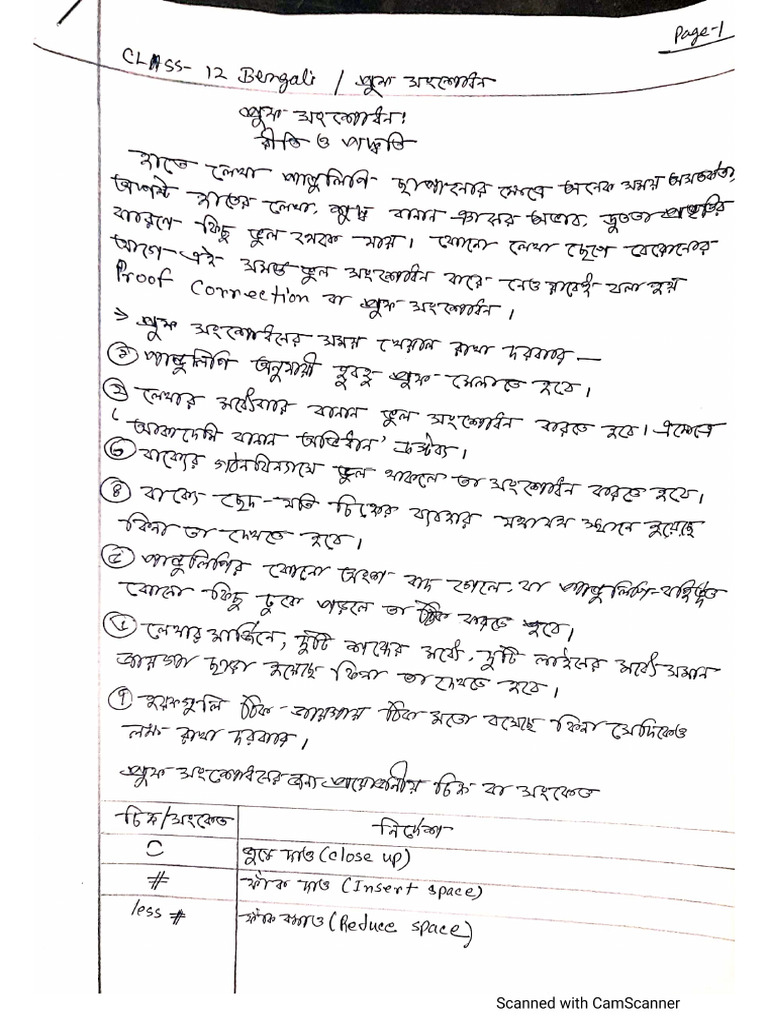 Page-1
CLASS-12 Bengali / প্রুফ সংশোধন
প্রুফ সংশোধন:
রীতি ও পদ্ধতি
হাতে লেখা পাণ্ডুলিপি ছাপানোর ক্ষেত্রে অনেক সময় অসতর্কতা,
অস্পষ্ট হাতের লেখা, শুদ্ধ বানান জ্ঞানের অভাব, দ্রুততা প্রভৃতির
কারণে কিছু ভুল থেকে যায়। কোনো লেখা ছেপে বেরোনোর
আগে এই সমস্ত ভুল সংশোধন করে নেওয়াকেই বলা হয়
Proof Connection বা প্রুফ সংশোধন।
> প্রুফ সংশোধনের সময় খেয়াল রাখা দরকার—
১ পাণ্ডুলিপি অনুযায়ী হুবহু প্রুফ মেলাতে হবে।
২ লেখার মধ্যেকার বানান ভুল সংশোধন করতে হবে। এক্ষেত্রে
'আকাদেমি বানান অভিধান' দ্রষ্টব্য।
৩ বাক্যের গঠনবিন্যাসে ভুল থাকলে তা সংশোধন করতে হবে।
৪ বাক্যে ছেদ-যতি চিহ্নের ব্যবহার যথাযথ স্থানে হয়েছে
কিনা তা দেখতে হবে।
৫ পাণ্ডুলিপির কোনো অংশ বাদ গেলে, বা পাণ্ডুলিপি-বহির্ভূত
কোনো কিছু ঢুকে পড়লে তা ঠিক করতে হবে।
৬ লেখার মার্জিনে, দুটি শব্দের মধ্যে, দুটি লাইনের মধ্যে সমান
জায়গা ছাড়া হয়েছে কিনা তা দেখতে হবে।
৭ হরফগুলি ঠিক জায়গায় ঠিক মতো বসেছে কিনা সেদিকেও
লক্ষ রাখা দরকার।
প্রুফ সংশোধনের জন্য প্রয়োজনীয় চিহ্ন বা সংকেত
চিহ্ন/সংকেত নির্দেশ
⊂ জুড়ে দাও (Close up)
# ফাঁক দাও (Insert space)
less # ফাঁক কমাও (Reduce space)
Scanned with CamScanner